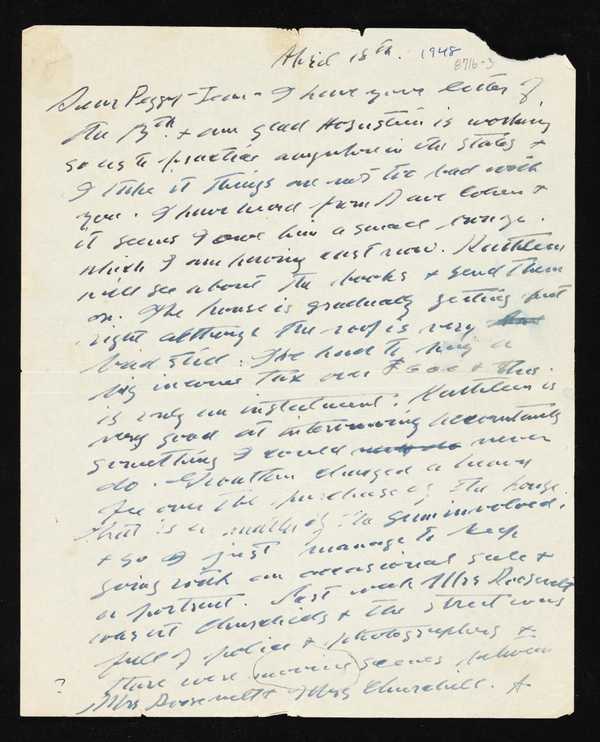 April 18th. 1948
8716-3
Dear Peggy-Jean - I have your letter of
the 13th. & am glad is working
so as to practice anywhere in the states &
I take it things are not too bad with
you. I have heard from Dave Cohen &
it seems I owe him a small
which I am having cast now. Kathleen
will see about the books & send them
on. The house is gradually getting put
right although the roof is very
bad still. I've had to pay a
big income tax over & this
is only an instalment: Kathleen is
very good at interviewing accountants
something I could never
do. charged a heavy
fee over the purchase of the house.
that is a matter of the sum involved.
& so I just manage to keep
going with an occasional sale &
a portrait. Last week Mrs Roosevelt
was at Churchills & the street was
full of police & photographers &
there were moving scenes between
? Mrs Roosevelt & Mrs Churchill. A